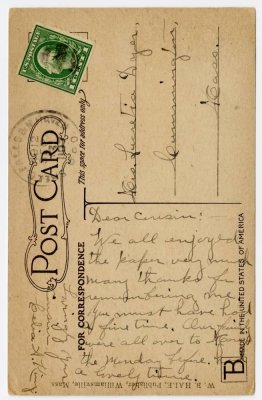 POST CARD
This space for address only.
FOR CORRESPONDENCE
W. B. HALE, Publisher, Williamsville, Mass.
MADE IN THE UNITED STATES OF AMERICA
B
Miss Lucretia Dyer,
Cummington,
Mass.
Dear Cousin:
We all enjoyed
the paper very much
many thanks for
remembering me
You must have had
a fine time. Our
were all over to
the Monday before. Had
a lovely time.